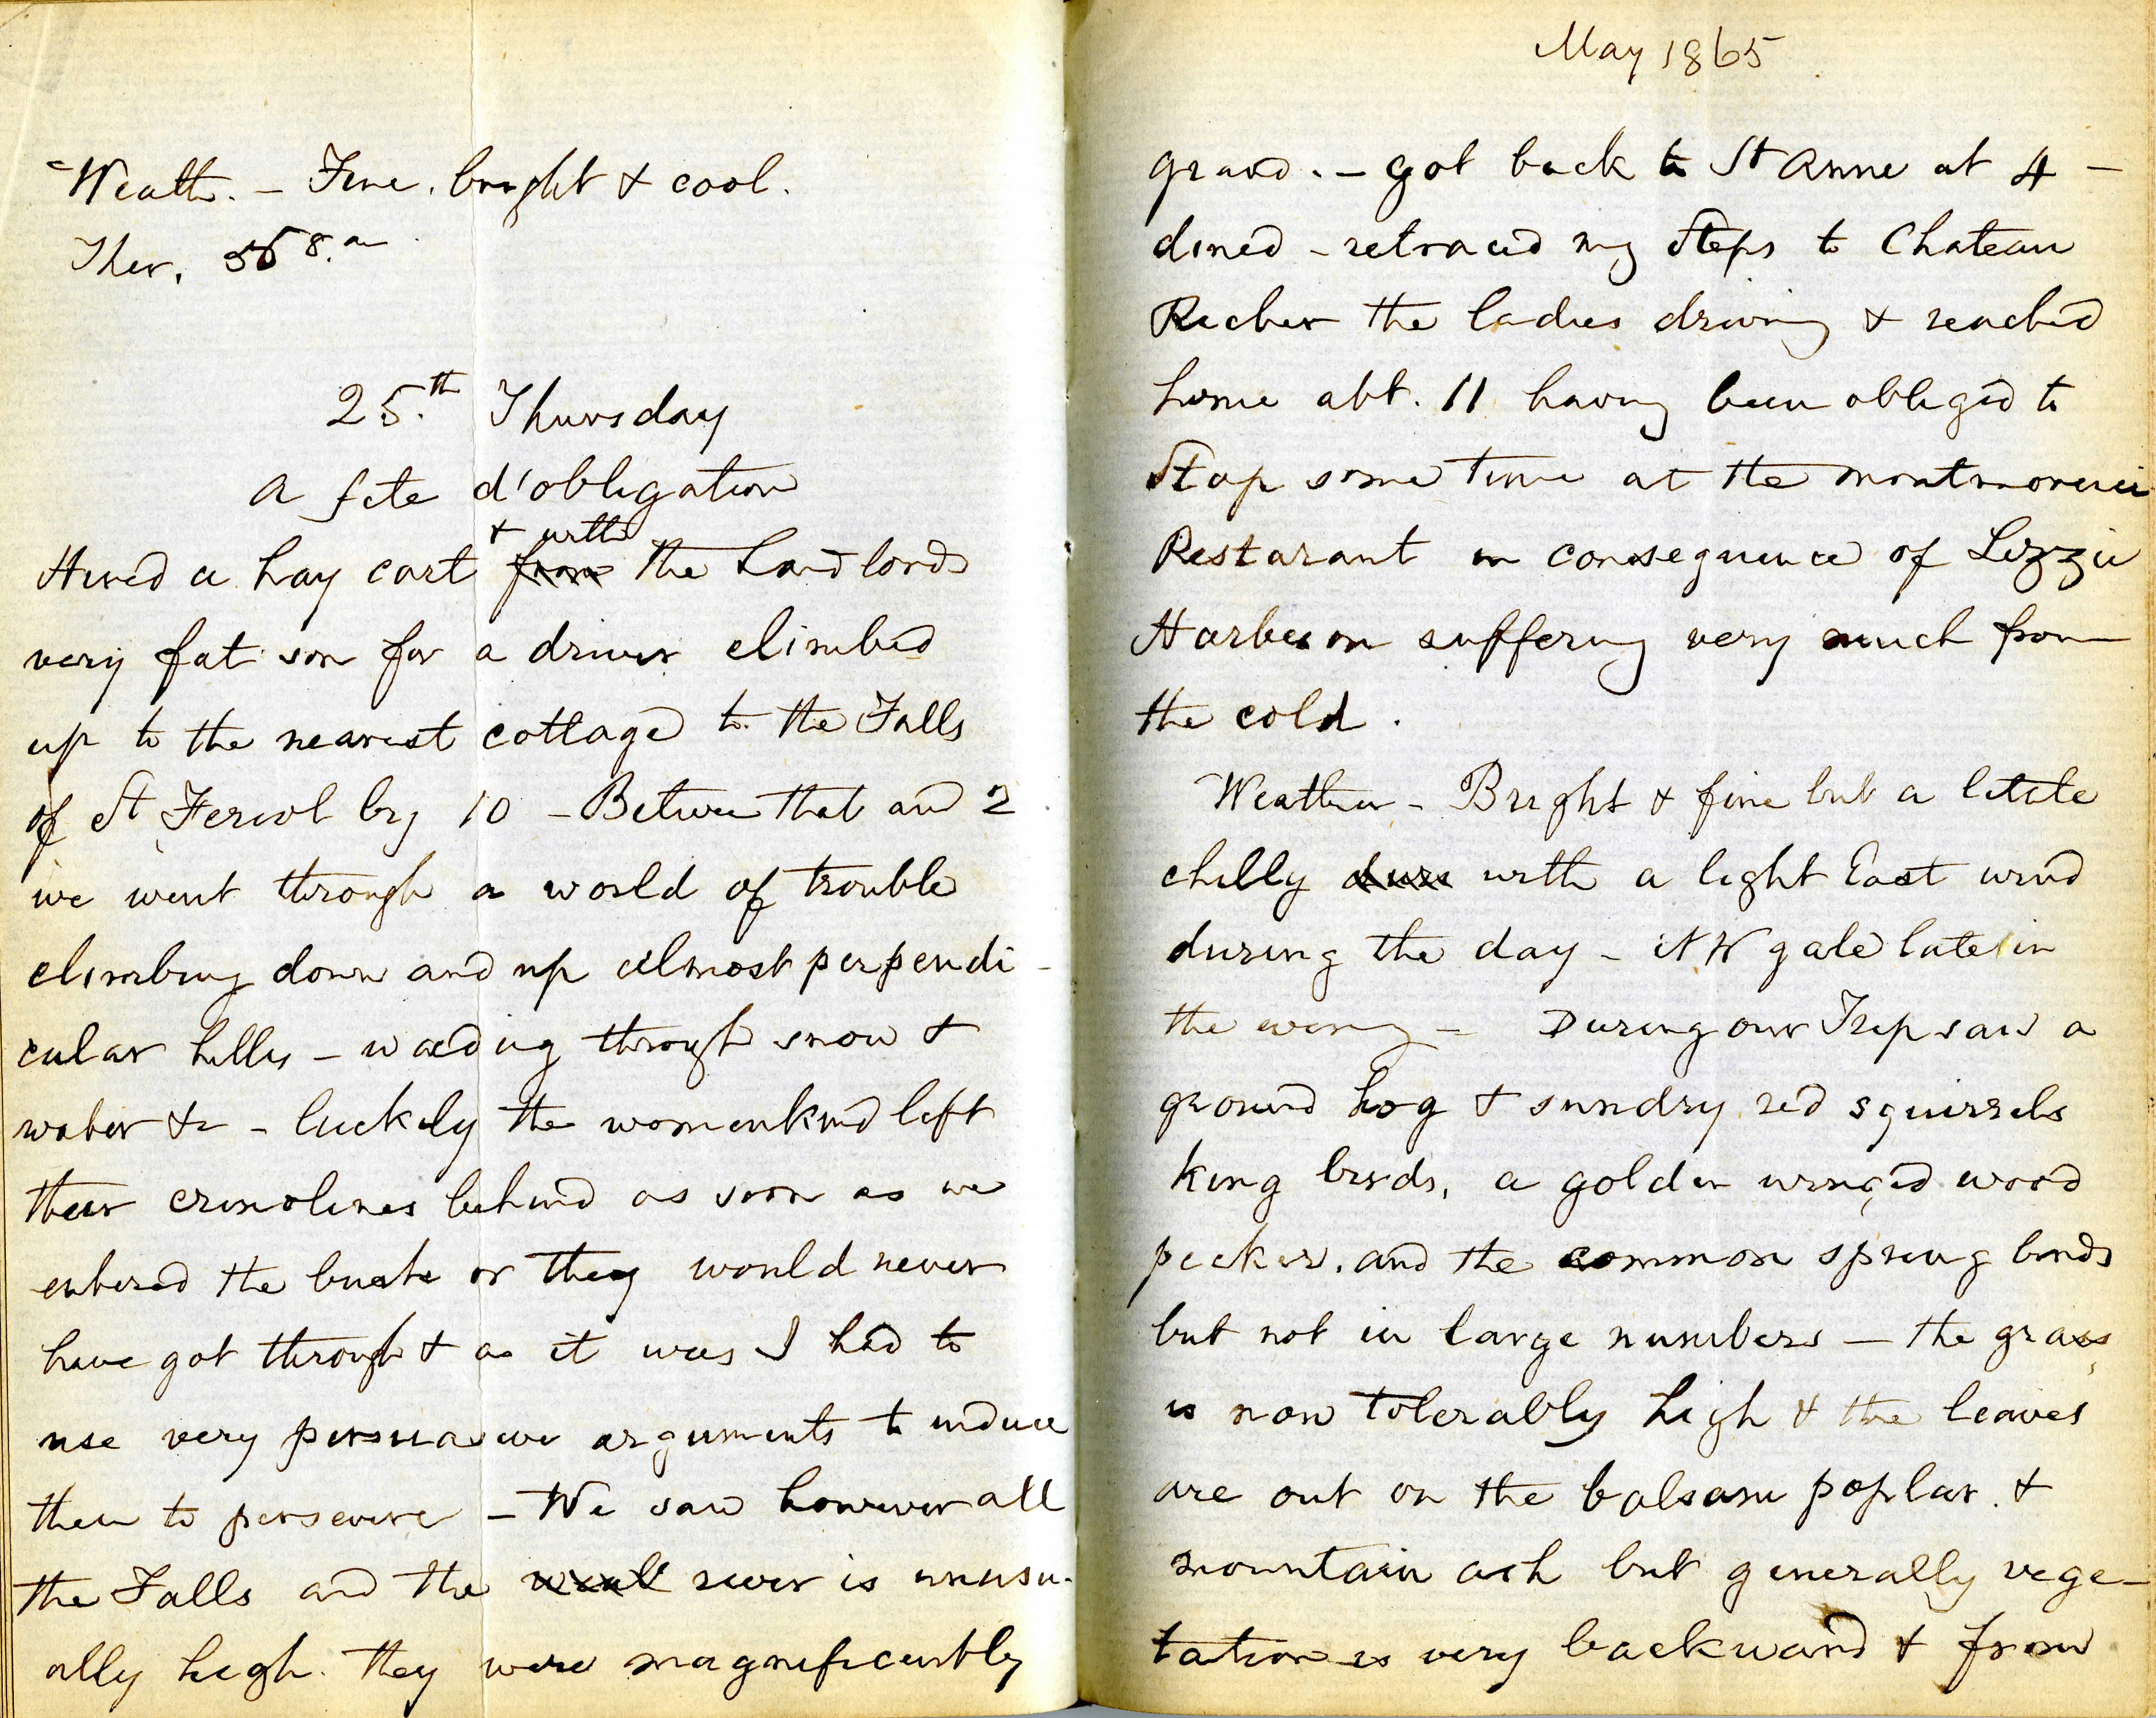 Weath. – Fine, bright & cool.
Ther. 8. am
25.th Thursday
A fete d'obligation
& with
Hired a hay cart from the Landlords
very fat son for a driver climbed
up to the nearest cottage to the Falls
of St Feriol by 10 – Between that and 2
we went through a world of trouble
climbing down and up almost perpendi-
cular hills – wading through snow &
water &c – luckily the womenkind left
their crinolines behind as soon as we
entered the bush or they would never
have got through & as it was I had to
use very persuasive arguments to induce
them to persevere – We saw however all
the Falls and the river is unusu-
ally high. they were magnificently
May 1865
grand. – Got back to St Anne at 4 –
dined – retraced my steps to Chateau
Richer the ladies driving & reached
home abt. 11 having been obliged to
stop some time at the Montmorenci
Restarant in consequence of Lizzie
Harbeson suffering very much from
the cold.
Weather – Bright & fine but a little
chilly with a light East wind
during the day – NW gale late in
the evening – During our Trip saw a
ground hog & sundry red squirrels
king birds, a golden winged wood
pecker, and the common spring birds
but not in large numbers – the grass
is now tolerably high & the leaves
are out on the balsam poplar. &
mountain ash but generally vege-
tation is very backward & from